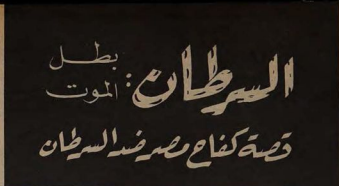 السرطان: بطل الموت
قصة كفاح مصر ضد السرطان